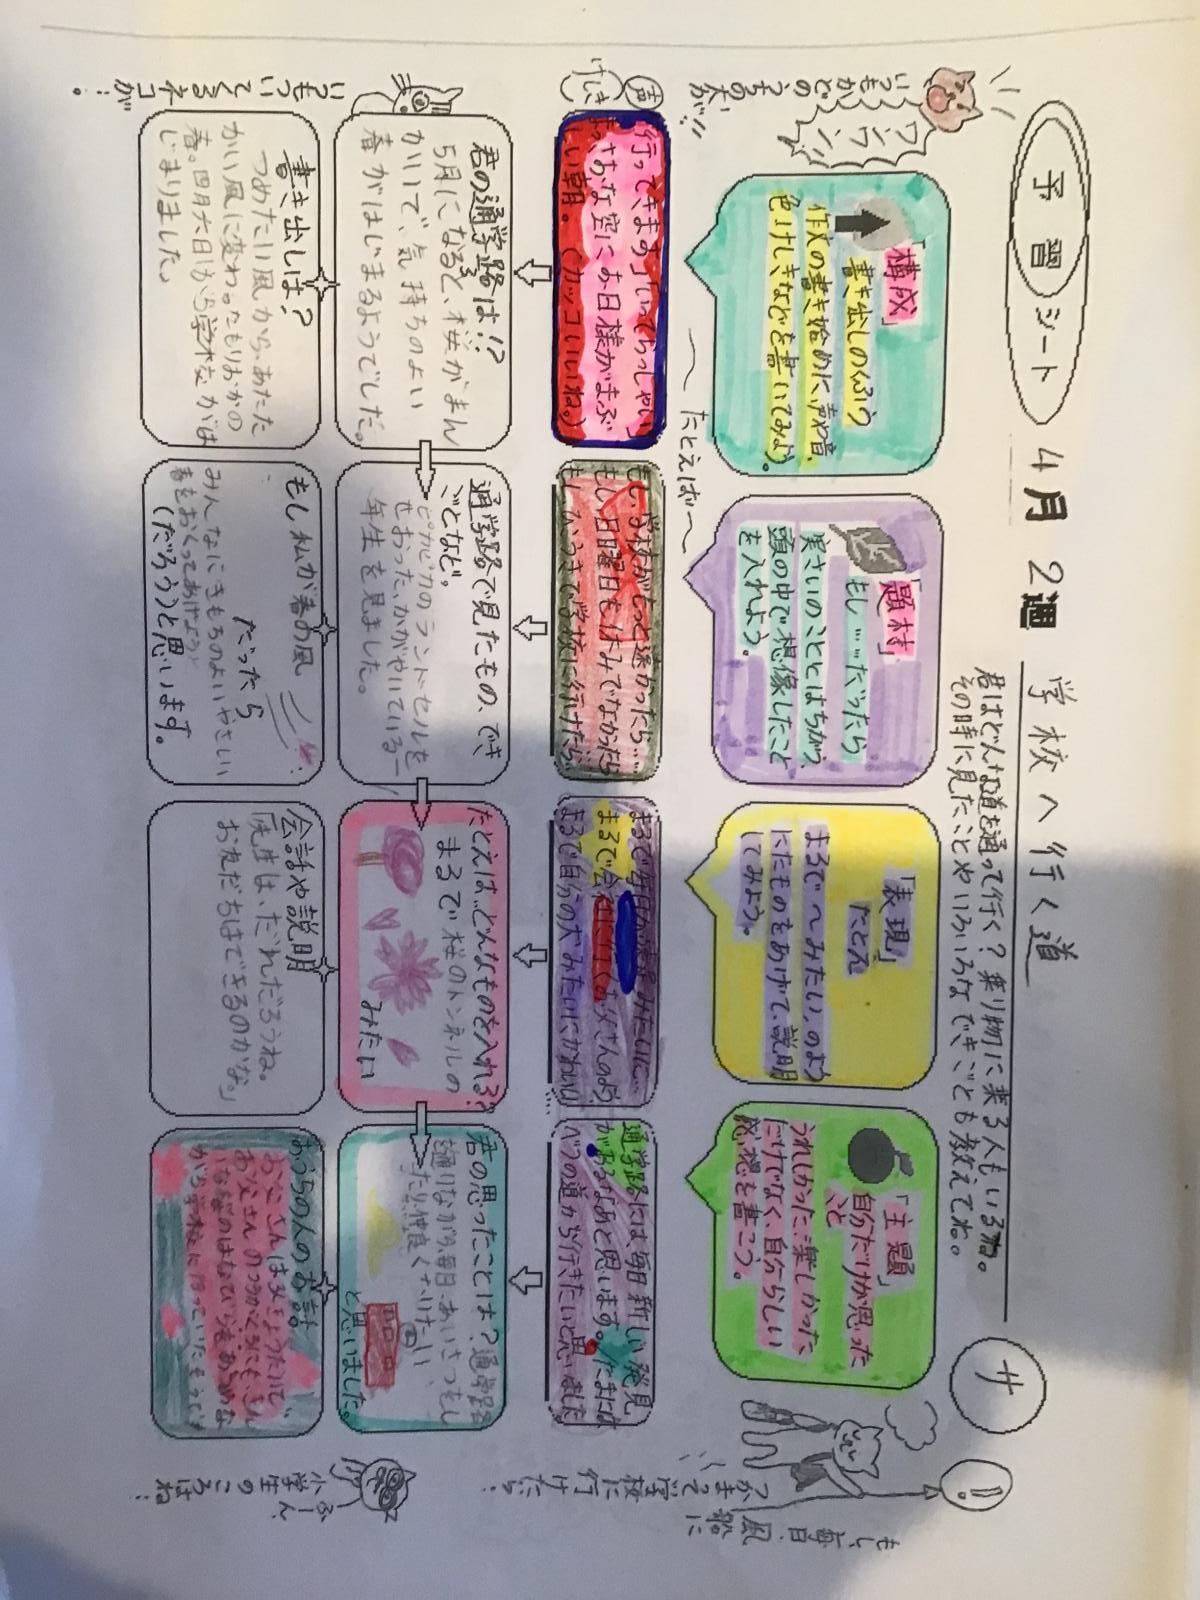 予習シート 4月2週
学校へ行く道
サ
君はどんな道を通って行く?乗り物に乗る人もいるね。
その時に見たことやいろいろなできごとも教えてね。
いつもかどのうちの犬が!!
ワンワン
「構成」
書き出しのくふう
作文の書き始めに、声や音、
色、けしきなどを書いてみよう。
「題材」
もし……だったら
実さいのこととはちがう、
頭の中で想像したこと
を入れよう。
「表現」
たとえ
まるで〜みたい、のよう
にたものをあげて、説明
してみよう。
「主題」
自分だけが思った
こと
うれしかった、楽しかった
だけでなく、自分らしい
感想を書こう。
もし、毎日、風船に
つかまって学校に行けたら!
〜たとえば〜
声
けしき
行ってきまーす「いってらっしゃい」
まっさおな空にお日様がまぶ
しい朝。(カッコいいね。)
もし、学校がもっと遠かったら……
もし、日曜日もお休みでなかったら
もし、ひこうきで学校に行けたら…
まるで会社に行くお父さんのよう
まるで自分の犬みたいにかわいい
……
通学路には、毎日新しい発見
があるなあと思います。たまには
べつの道から行きたいと思いました
君の通学路は!?
5月になると、桜がまん
かいで、気持ちのよい
春がはじまるようでした。
通学路で見たもの、でき
ごとなど。
ピカピカのランドセルを
せおった、かがやいている一
年生を見ました。
たとえば、どんなものを入れる?
まるで桜のトンネルの
みたい
君の思ったことは?通学路
を通りながら、毎日、あいさつをし
たり、仲良くなりたい
と思いました。
いつもついてくるネコ
が…。
書き出しは?
つめたい風から、あたた
かい風に変わったもりおかの
春。四月六日から学校がは
じまりました。
もし私が春の風
だったら
みんなにきもちのよいやさしい
春をおくってあげようと
(だろう)と思います。
会話や説明
「先生は、だれだろうね。
おともだちはできるのかな。」
おうちの人のお話。
がら学校に行っていたそうです
ふーん、
小学生のころはね!